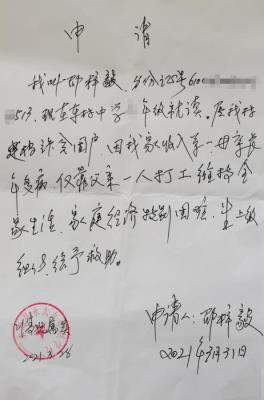 申请
我叫邵梓毅，身份证号610
513，现在车村中学 年级就读。系我村
建档贫困户，因我家收入单一，母亲长
年多病，仅靠父亲一人打工维持全
家生活，家庭经济特别困难，望上级
组织给予救助。
情况属实
2021.3.28
申请人：邵梓毅
2021年3月31日